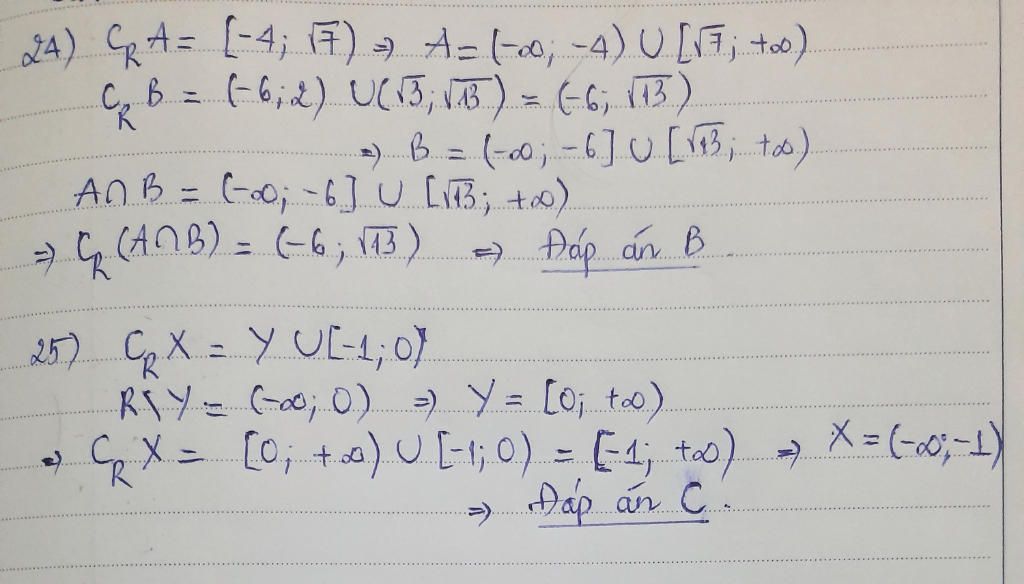 24) C_R A = [-4; √7) ⇒ A = (-∞; -4) ∪ [√7; +∞)
C_R B = (-6; 2) ∪ (√3; √13) = (-6; √13)
⇒ B = (-∞; -6] ∪ [√13; +∞)
A∩B = (-∞; -6] ∪ [√13; +∞)
⇒ C_R (A∩B) = (-6; √13) ⇒ Đáp án B.
25) C_R X = Y ∪ [-1; 0)
R \ Y = (-∞; 0) ⇒ Y = [0; +∞)
⇒ C_R X = [0; +∞) ∪ [-1; 0) = [-1; +∞) ⇒ X = (-∞; -1)
⇒ Đáp án C.